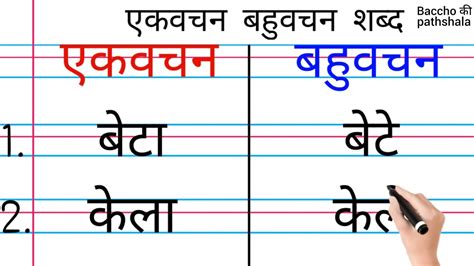 एकवचन बहुवचन शब्द
Baccho की
pathshala
एकवचन बहुवचन
1. बेटा बेटे
2. केला केल